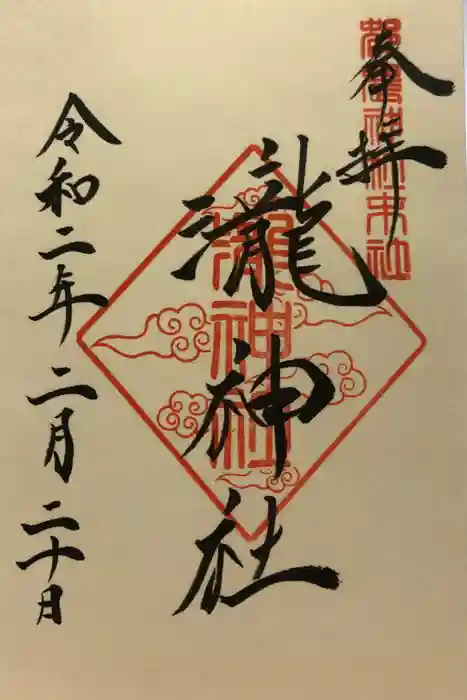 奉拝
都農神社末社
瀧神社
瀧神社
令和二年二月二十日